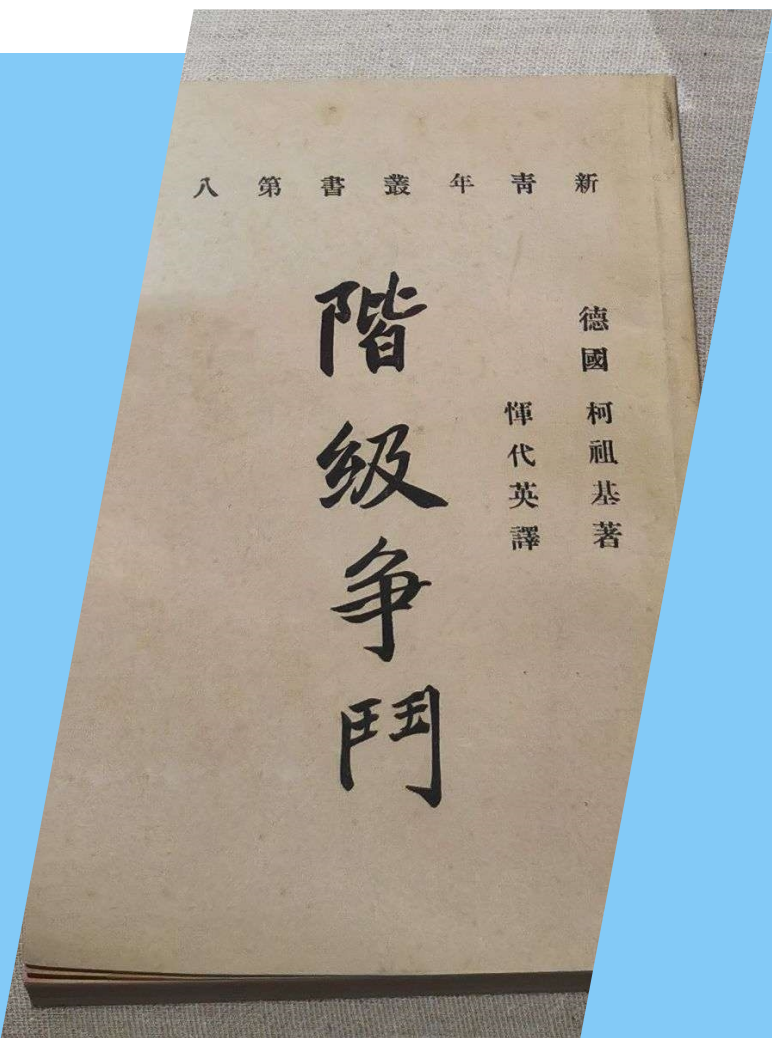 新青年叢書第八
德國 柯祖基著
惲代英譯
階級争鬥